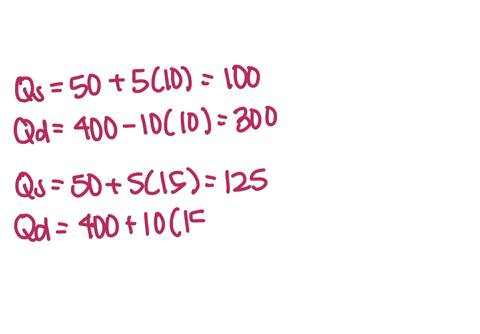 Qs = 50 + 5(10) = 100
Qd = 400 - 10(10) = 300
Qs = 50 + 5(15) = 125
Qd = 400 + 10(15